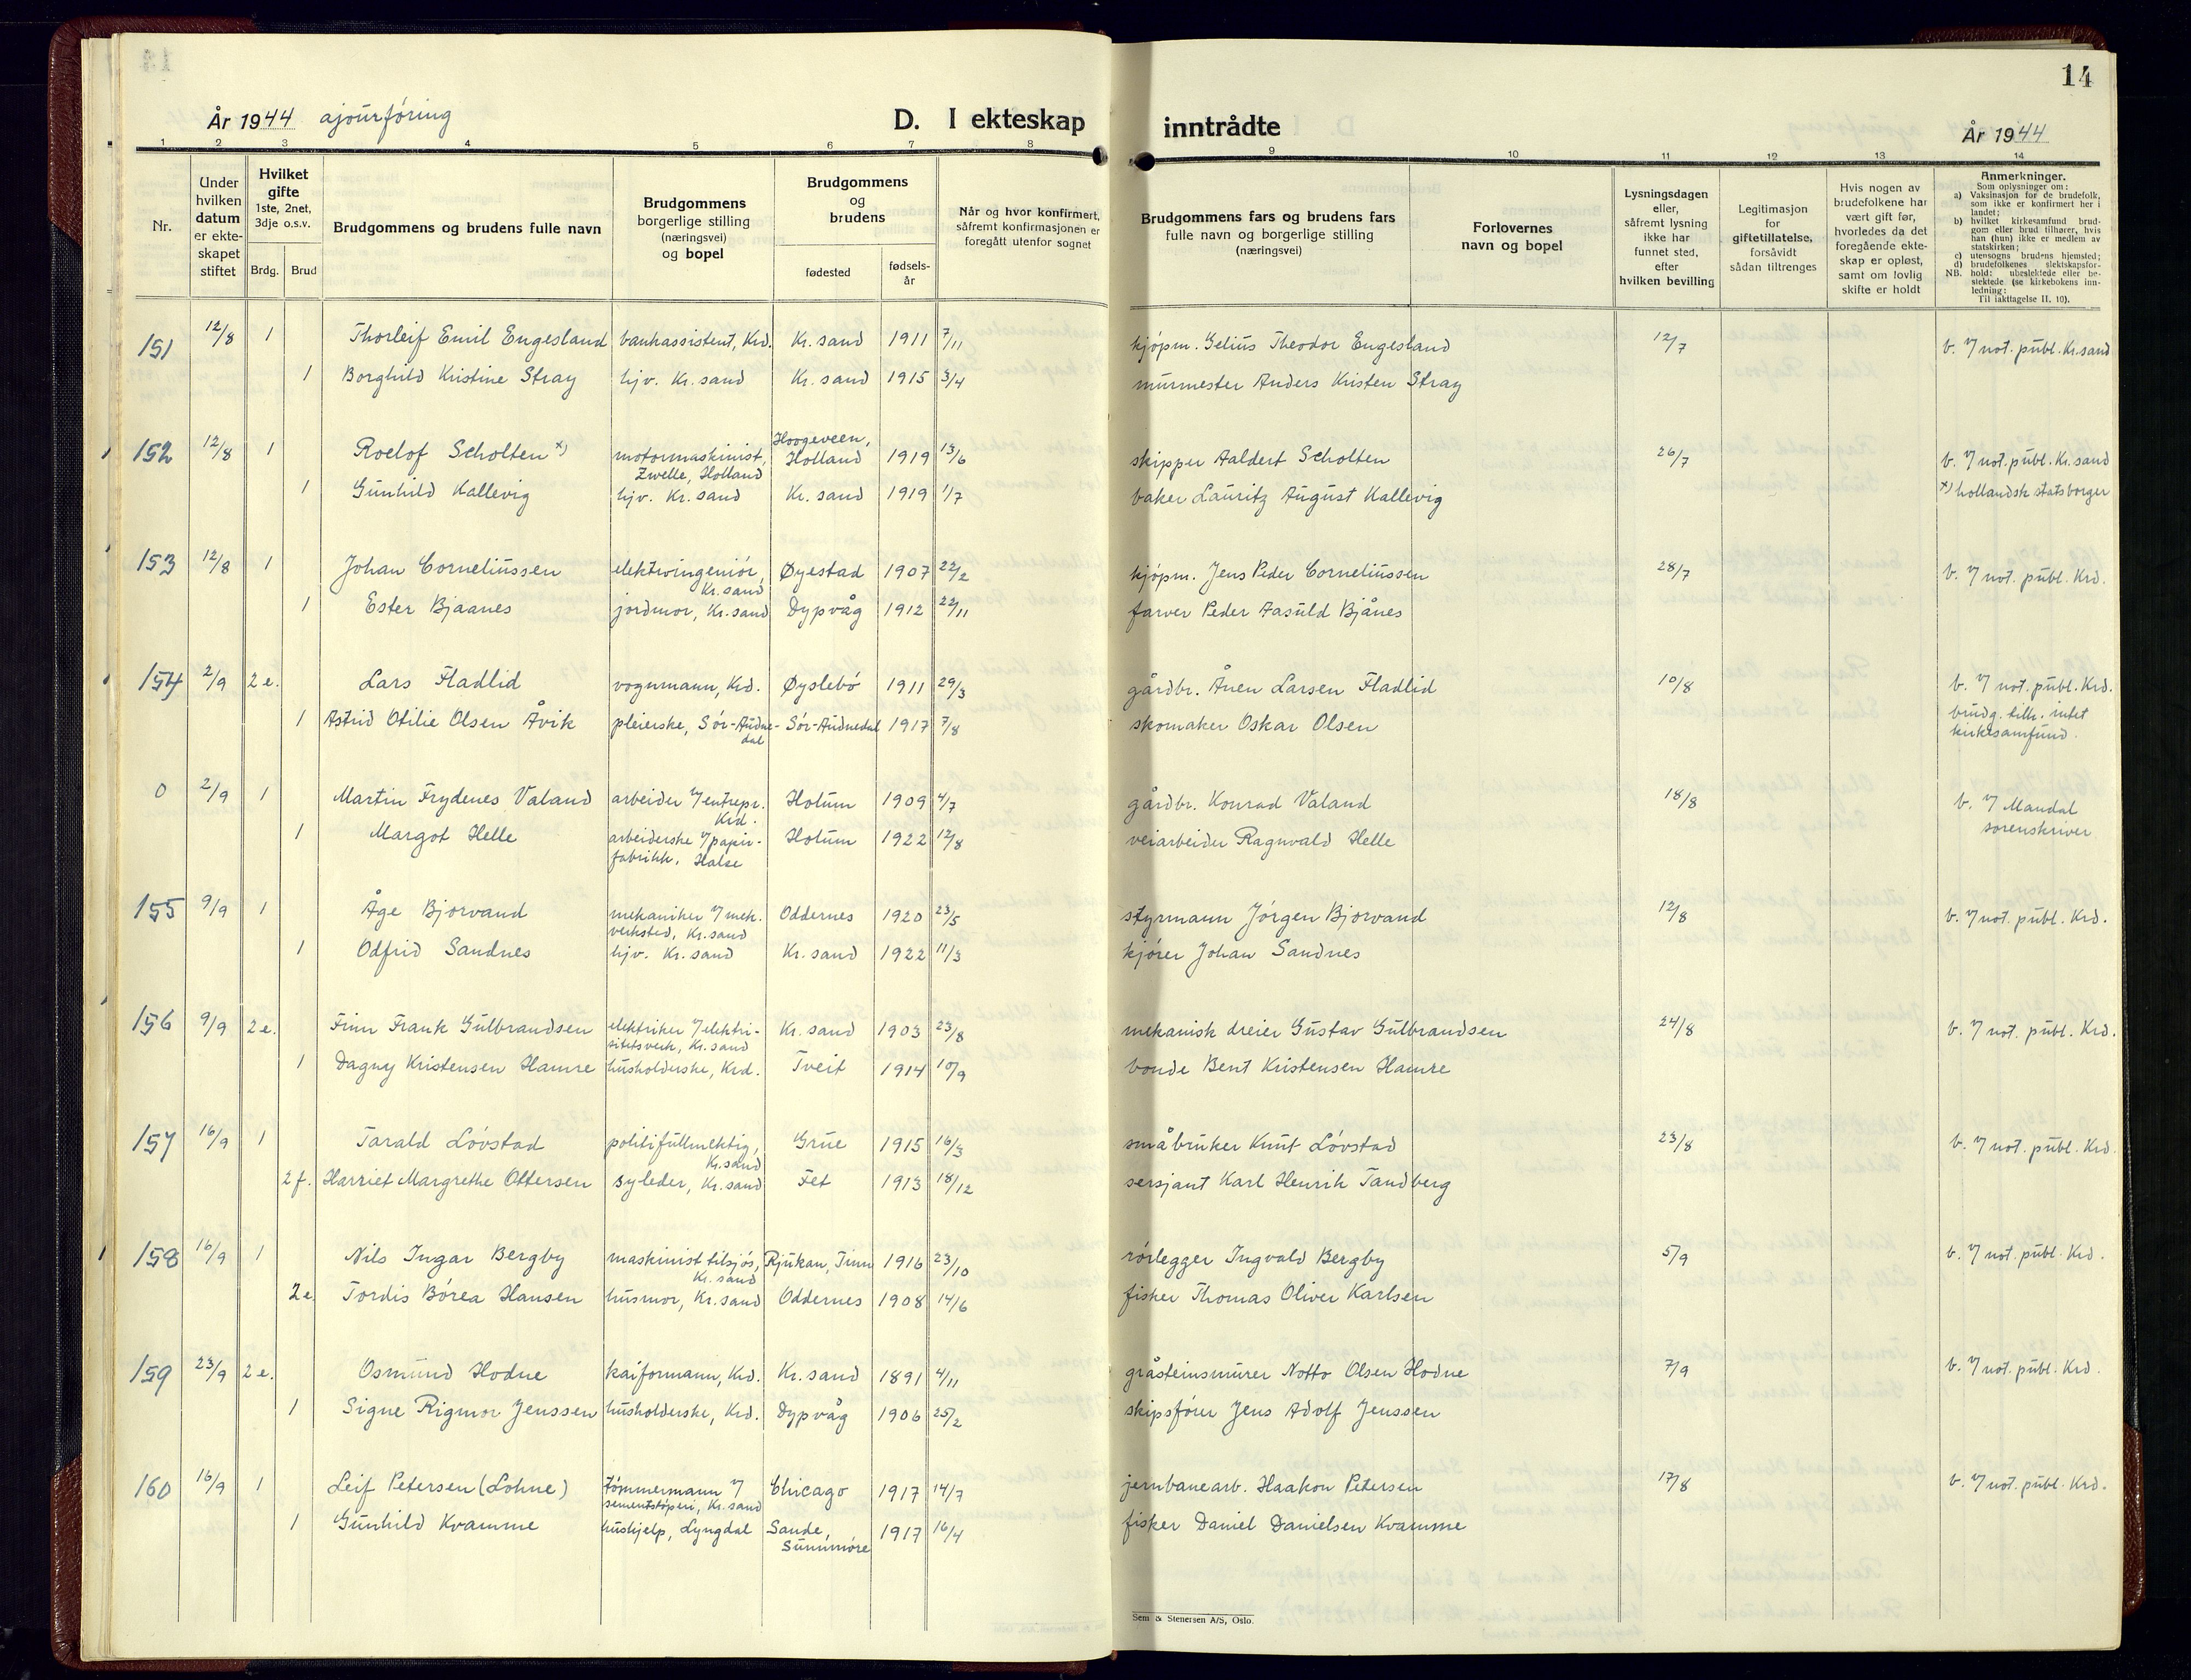 14
År 1944 ajourføring
D. I ekteskap inntrådte
År 1944
1 2 3 4 5 6 7 8 9 10 11 12 13 14
Nr.
Under hvilken datum er ekte-skapet stiftet
Hvilket gifte 1ste, 2net, 3dje o.s.v.
Brdg. Brud
Brudgommens og brudens fulle navn
Brudgommens borgerlige stilling (næringsvei) og bopel
Brudgommens og brudens
fødested fødsels-år
Når og hvor konfirmert, såfremt konfirmasjonen er foregått utenfor sognet
Brudgommens fars og brudens fars fulle navn og borgerlige stilling (næringsvei)
Forlovernes navn og bopel
Lysningsdagen eller, såfremt lysning ikke har funnet sted, efter hvilken bevilling
Legitimasjon for giftetillatelse, forsåvidt sådan tiltrenges
Hvis nogen av brudefolkene har vært gift før, hvorledes da det foregående ekte-skap er opløst, samt om lovlig skifte er holdt
Anmerkninger.
Som oplysninger om:
a) Vaksinasjon for de brudefolk, som ikke er konfirmert her i landet;
b) hvilket kirkesamfund brud-gom eller brud tilhører, hvis han (hun) ikke er medlem av statskirken;
c) utensogns brudens hjemsted;
d) brudefolkenes slektskapsfor-
NB. hold: ubeslektede eller be-slektede (se kirkebokens inn-ledning:
Til iakttagelse II. 10).
151 12/8 1 Thorleif Emil Engesland bankassistent, Krd. Kr. sand 1911 7/11 kjøpm. Gelius Theodor Engesland 12/7 b. v/ not. publ. Kr.sand
1 Borghild Kristine Stray hjv. Kr. sand Kr. sand 1915 3/4 murmester Anders Kristen Stray
152 12/8 1 Roelof Scholten x) motormaskinist, Zwelle, Holland Hoogeveen, Holland 1919 13/6 skipper Aaldert Scholten 26/7 b. v/ not. publ. Kr. sand
1 Gunhild Kallevig hjv. Kr. sand Kr. sand 1919 1/7 baker Lauritz August Kallevig x) hollandsk statsborger
153 12/8 1 Johan Corneliussen elektroingeniør, Kr. sand Øyestad 1907 22/2 kjøpm. Jens Peder Corneliussen 28/7 b. v/ not. publ. Krd.
1 Ester Bjaanes jordmor, Kr. sand Dypvåg 1912 22/11 farver Peder Aasuld Bjånes
154 2/9 2 e. Lars Fladlid vognmann, Krd. Øyslebø 1911 29/3 gårdbr. Ånen Larsen Fladlid 10/8 b. v/ not. publ. Krd.
1 Astrid Otilie Olsen Åvik pleierske, Sør-Audne-dal Sør-Audnedal 1917 7/8 skomaker Oskar Olsen brudg. tilh. intet kirkesamfund.
0 2/9 1 Martin Frydenes Valand arbeider v/ entrepr. Krd. Holum 1909 4/7 gårdbr. Konrad Valand 18/8 b. v/ Mandal sorenskriver
1 Margot Helle arbeiderske v/ papir-fabrikk, Halse Holum 1922 12/8 veiarbeider Ragnvald Helle
155 9/9 1 Åge Bjorvand mekaniker v/ mek. verksted, Kr. sand Oddernes 1920 23/5 styrmann Jørgen Bjorvand 12/8 b. v/ not. publ. Krd.
1 Odfrid Sandnes hjv. Kr. sand Kr. sand 1922 11/3 kjører Johan Sandnes
156 9/9 2 e. Finn Frank Gulbrandsen elektriker v/ elektri-sitetsverk, Kr. sand Kr. sand 1903 23/8 mekanisk dreier Gustav Gulbrandsen 24/8 b. v/ not. publ. Krd.
1 Dagny Kristensen Hamre husholderske, Krd. Tveit 1914 10/9 bonde Bent Kristensen Hamre
157 16/9 1 Tarald Løvstad politifullmektig, Kr. sand Grue 1915 16/3 småbruker Knut Løvstad 23/8 b. v/ not. publ. Krd.
2 f. Harriet Margrethe Ottersen syleder, Kr. sand Fet 1913 18/12 sersjant Karl Henrik Tandberg
158 16/9 1 Nils Ingar Bergby maskinist tilsjøs, Kr. sand Rjukan, Tinn 1916 23/10 rørlegger Ingvald Bergby 5/9 b. v/ not. publ. Krd.
2 e. Tordis Børea Hansen husmor, Kr. sand Oddernes 1908 14/6 fisker Thomas Oliver Karlsen
159 23/9 2 e. Osmund Hodne kaiformann, Krd. Kr. sand 1891 4/11 gråsteinsmurer Notto Olsen Hodne 7/9 b. v/ not. publ. Krd.
1 Signe Rigmor Jenssen husholderske, Krd. Dypvåg 1906 25/2 skipsfører Jens Adolf Jenssen
160 16/9 1 Leif Petersen (Lohne) tømmermann v/ sementstøperi, Kr. sand Chicago 1917 14/7 jernbanearb. Haakon Petersen 17/8 b. v/ not. publ. Krd.
1 Gunhild Kvamme hushjelp, Lyngdal Sande, Sunnmøre 1917 16/4 fisker Daniel Danielsen Kvamme
Sem & Stenersen A/S, Oslo.